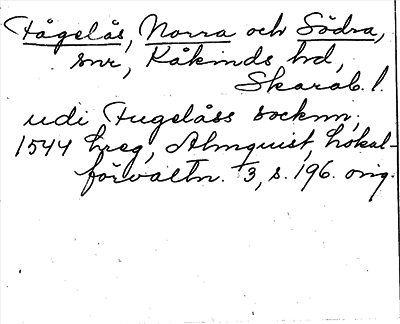 Fågelås, Norra och Södra,
snr, Kåkinds hd,
Skarab. l.
udi Fugelåss socknn,
1544 hreg, Almquist, Lokal-
förvaltn. 3, s. 196. orig.